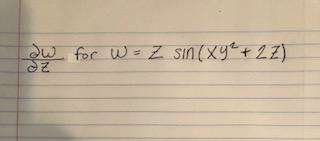 ∂w/∂z for w = z sin(xy² + 2z)